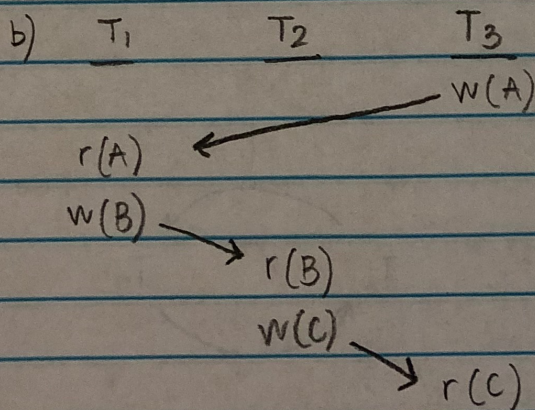 b) T₁ T₂ T₃
w(A)
r(A)
w(B)
r(B)
w(C)
r(C)